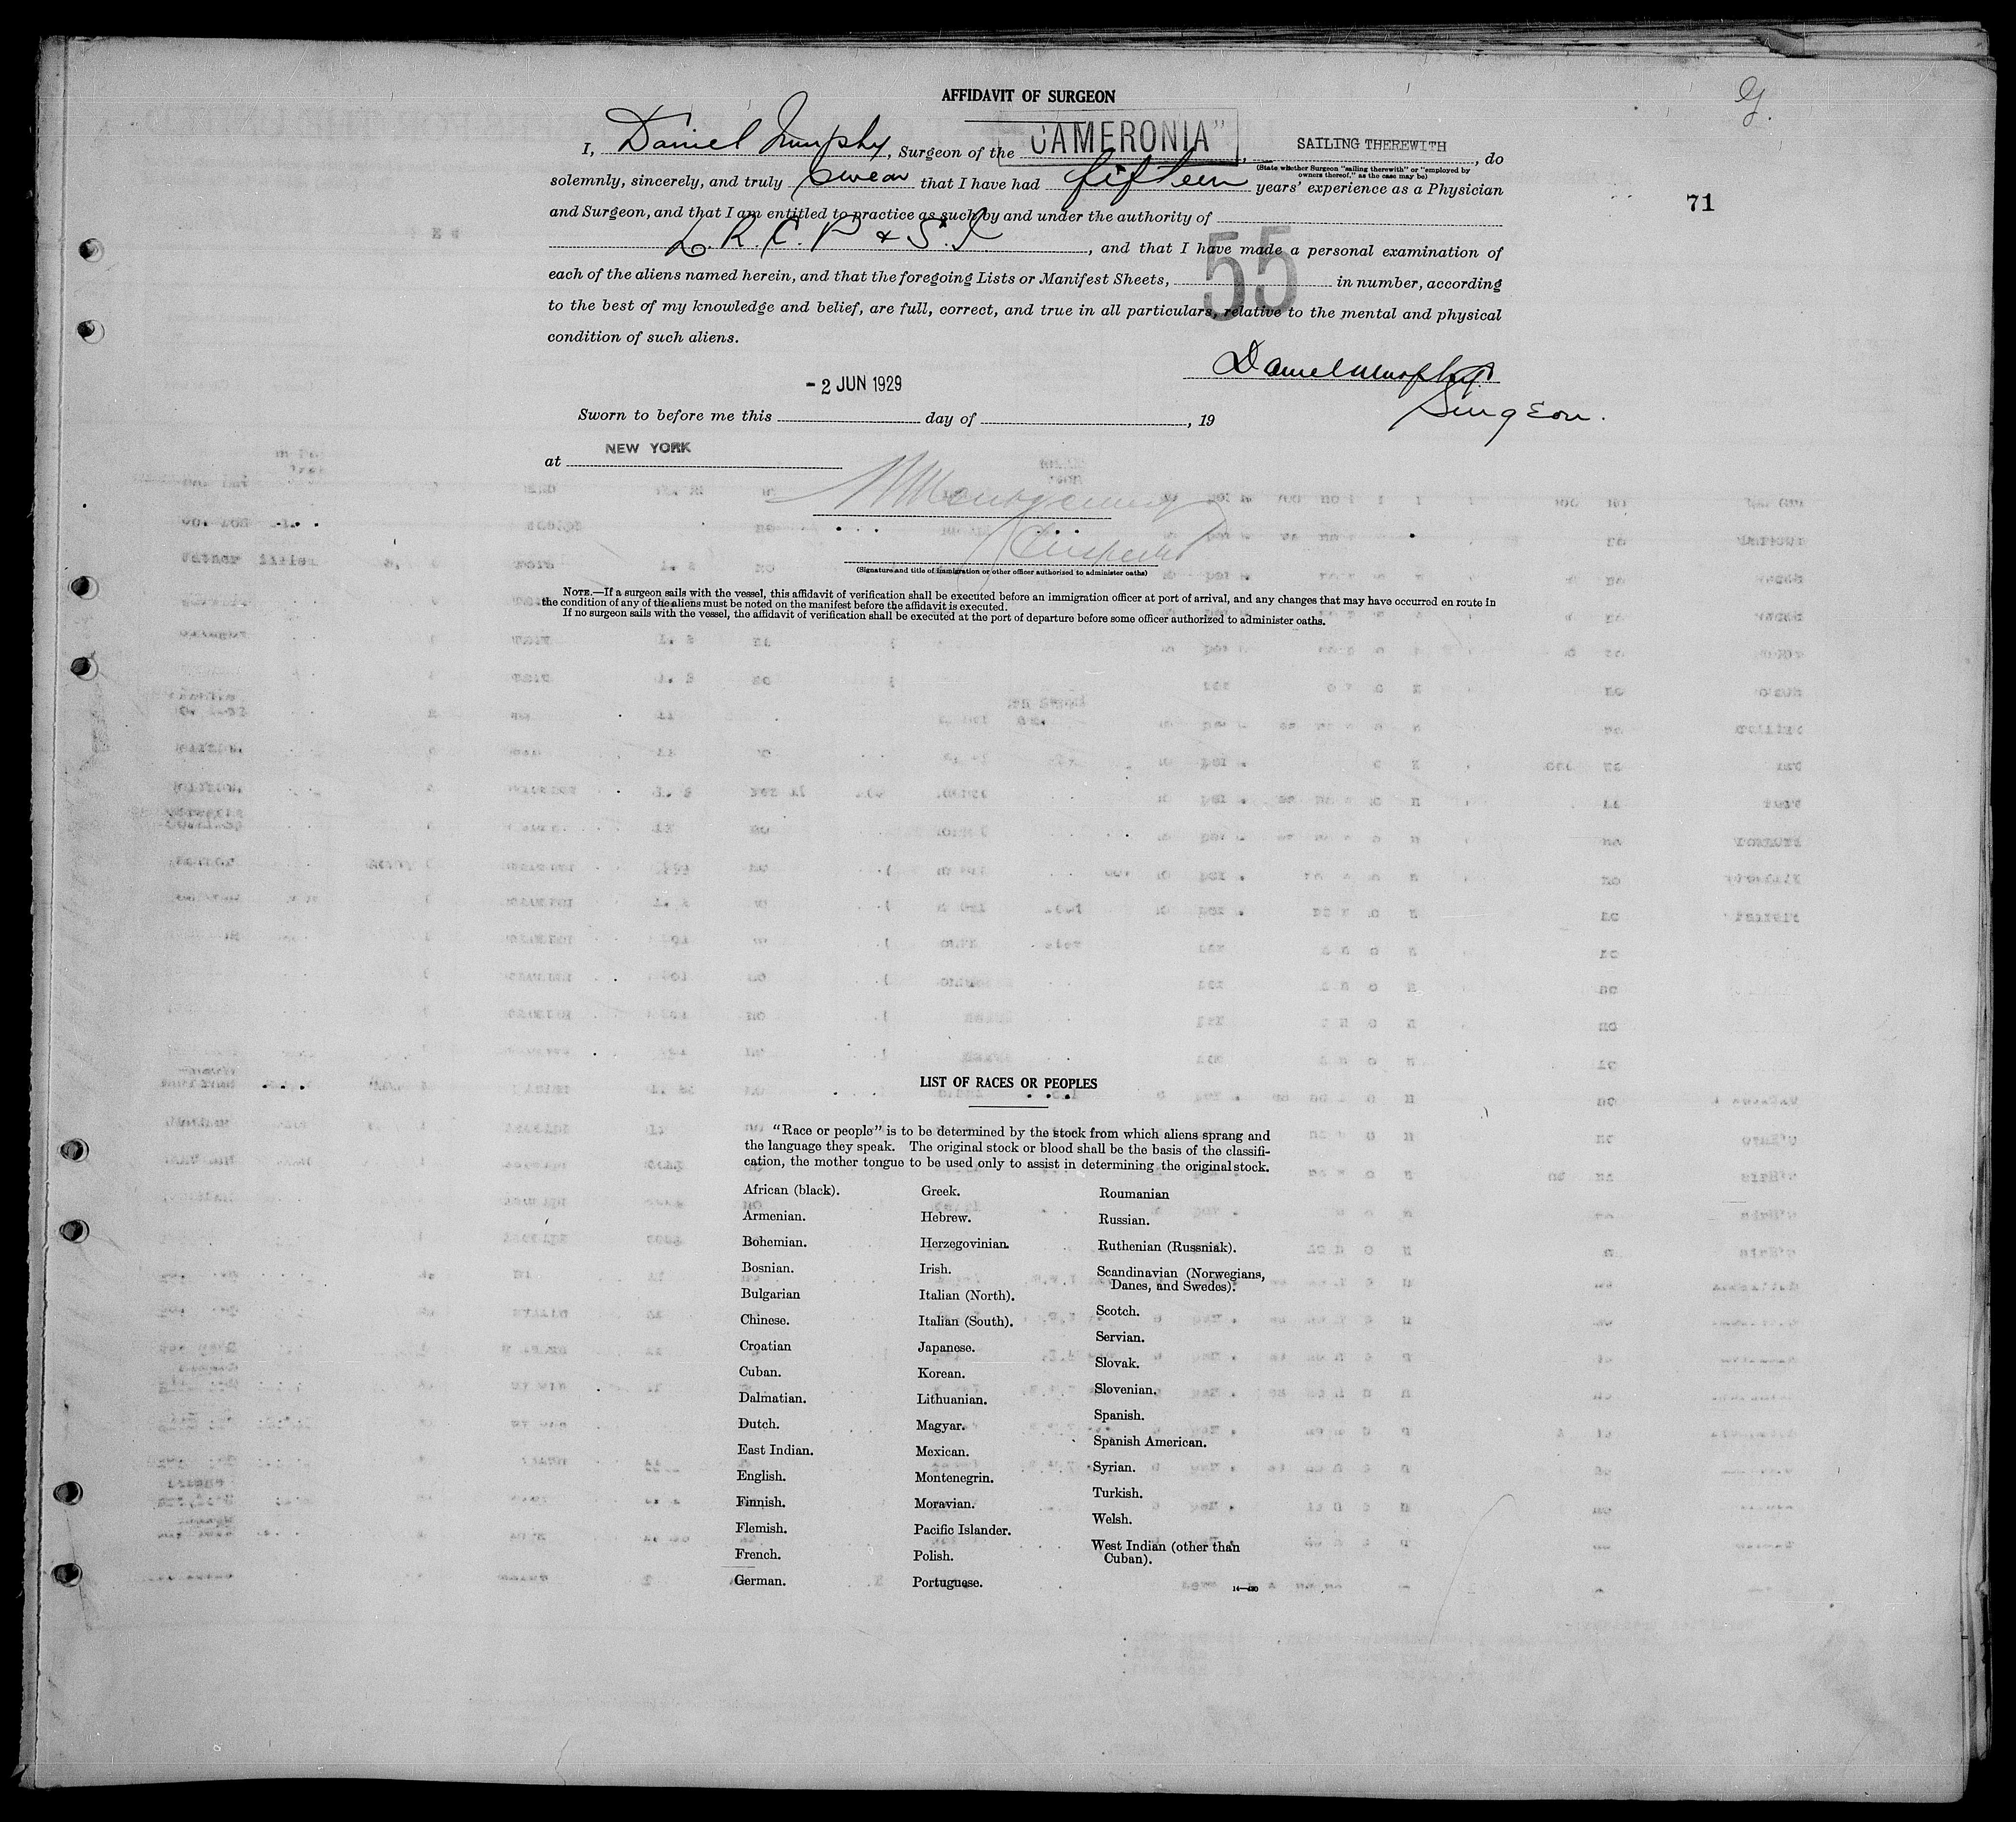 G.
AFFIDAVIT OF SURGEON
I, Daniel Murphy, Surgeon of the CAMERONIA", SAILING THEREWITH, do
(State whether Surgeon "sailing therewith" or "employed by
owners thereof," as the case may be)
solemnly, sincerely, and truly swear that I have had fifteen years' experience as a Physician
71
and Surgeon, and that I am entitled to practice as such by and under the authority of
L. R. C. P & S. I, and that I have made a personal examination of
each of the aliens named herein, and that the foregoing Lists or Manifest Sheets, 55 in number, according
to the best of my knowledge and belief, are full, correct, and true in all particulars, relative to the mental and physical
condition of such aliens.
Daniel Murphy
Surgeon.
- 2 JUN 1929
Sworn to before me this day of , 19
at NEW YORK
Montgomery
Inspector
(Signature and title of immigration or other officer authorized to administer oaths)
NOTE.—If a surgeon sails with the vessel, this affidavit of verification shall be executed before an immigration officer at port of arrival, and any changes that may have occurred en route in
the condition of any of the aliens must be noted on the manifest before the affidavit is executed.
If no surgeon sails with the vessel, the affidavit of verification shall be executed at the port of departure before some officer authorized to administer oaths.
LIST OF RACES OR PEOPLES
"Race or people" is to be determined by the stock from which aliens sprang and
the language they speak. The original stock or blood shall be the basis of the classifi-
cation, the mother tongue to be used only to assist in determining the original stock.
African (black).
Armenian.
Bohemian.
Bosnian.
Bulgarian
Chinese.
Croatian
Cuban.
Dalmatian.
Dutch.
East Indian.
English.
Finnish.
Flemish.
French.
German.
Greek.
Hebrew.
Herzegovinian.
Irish.
Italian (North).
Italian (South).
Japanese.
Korean.
Lithuanian.
Magyar.
Mexican.
Montenegrin.
Moravian.
Pacific Islander.
Polish.
Portuguese.
Roumanian
Russian.
Ruthenian (Russniak).
Scandinavian (Norwegians,
Danes, and Swedes).
Scotch.
Servian.
Slovak.
Slovenian.
Spanish.
Spanish American.
Syrian.
Turkish.
Welsh.
West Indian (other than
Cuban).